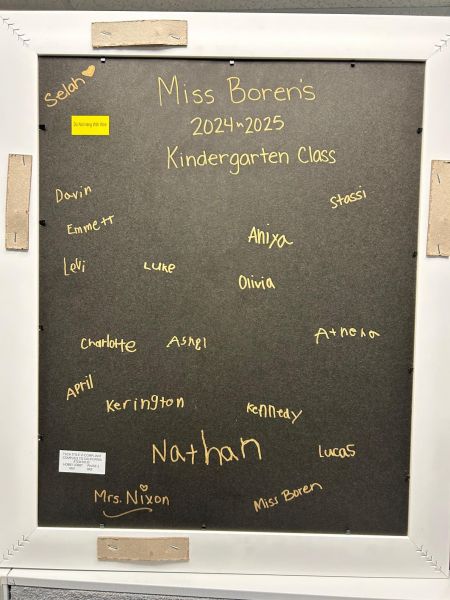 Selah
Miss Boren's
2024~2025
Kindergarten Class
Davin
Stassi
Emmett
Aniya
Levi
Luke
Olivia
Athena
Charlotte
April
Kerington
Kennedy
Nathan
Lucas
Mrs. Nixon
Miss Boren